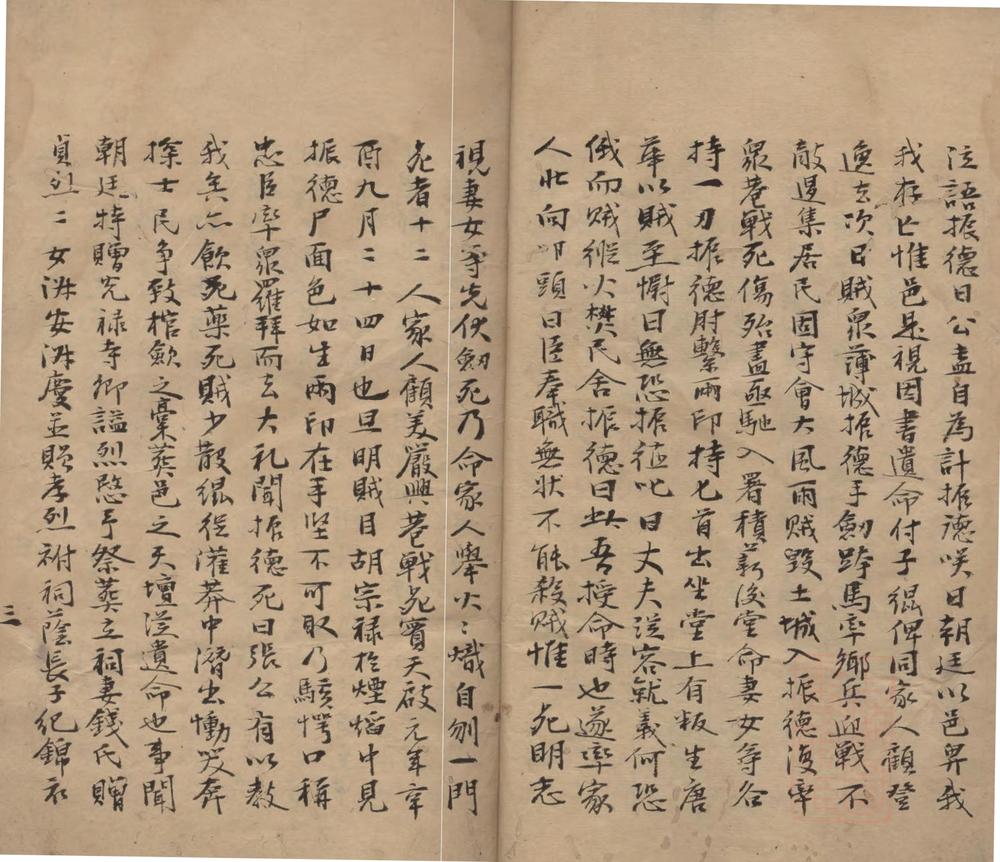 泣語振德曰公盍自為計振德嘆曰朝廷以邑畀我
我存亡惟邑是視因書遺命付子緄俾同家人顧登
逸去次日賊衆薄城振德手劒跨馬率鄉兵血戰不
敵退集居民固守會大風雨賊毀土城入振德復率
衆巷戰死傷殆盡亟馳入署積薪後堂命妻女等各
持一刃振德肘繫兩印持匕首出坐堂上有叛生唐
華以賊至懈曰無恐振德叱曰丈夫從容就義何恐
俄而賊縱火焚民舍振德曰此吾授命時也遂率家
人北向叩頭曰臣奉職無狀不能殺賊惟一死明志
視妻女等先伏劒死乃命家人舉火〻熾自刎一門
死者十二人家人顧美嚴興巷戰死實天啟元年辛
酉九月二十四日也旦明賊目胡宗祿於煙熖中見
振德尸面色如生兩印在手坚不可取乃駭愕口稱
忠臣率衆羅拜而去大礼聞振德死曰張公有以教
我矣亦飲藥死賊少散緄從灌莽中潛出慟哭奔
探士民爭致棺歛之藁葬邑之天壇從遺命也事聞
朝廷特贈光祿寺卿諡烈愍予祭葬立祠妻錢氏贈
貞烈二女淑安淑慶並贈孝烈祔祠蔭長子紀錦衣
三